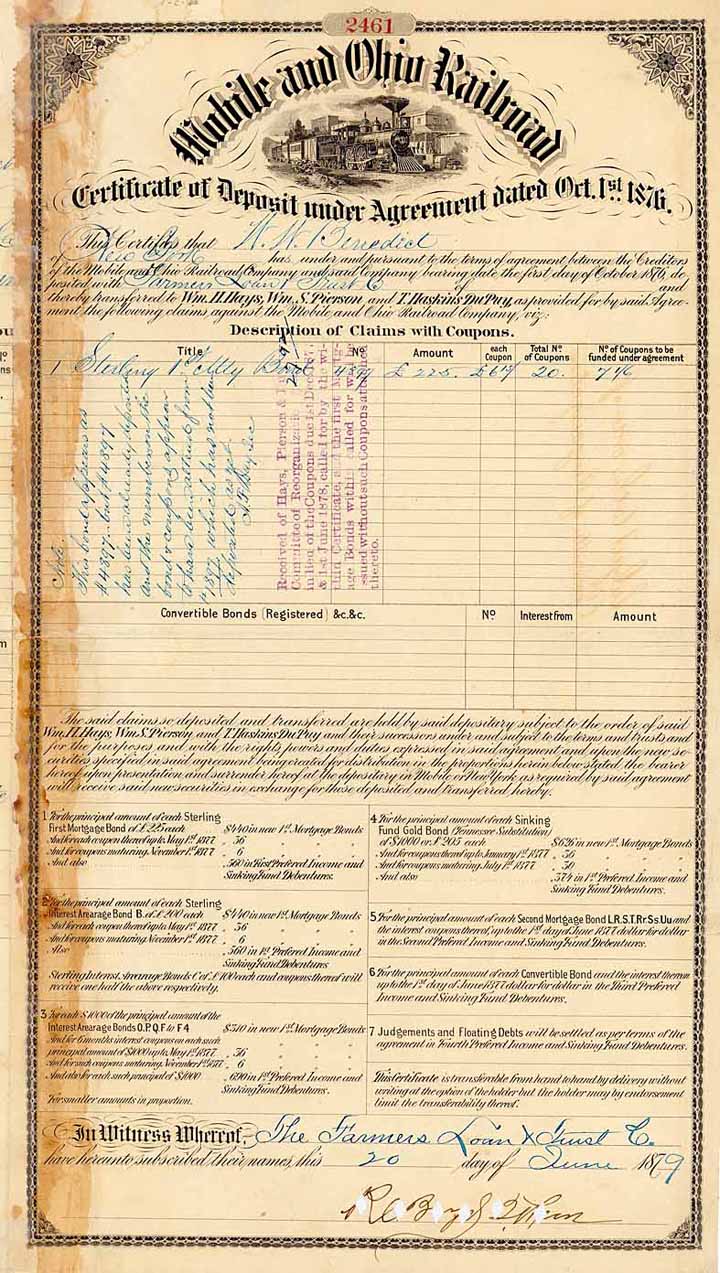 2461
Mobile and Ohio Railroad
Certificate of Deposit under Agreement dated Oct. 1st 1876.
This Certifies that W. W. Benedict
of New York has under and pursuant to the terms of agreement between the Creditors
of the Mobile and Ohio Railroad Company and said Company bearing date the first day of October 1876, de
posited with Farmers Loan & Trust Co of and
thereby transferred to Wm. H. Hays, Wm. S. Pierson and T. Haskins Du Puy, as provided for by said Agree-
ment the following claims against the Mobile and Ohio Railroad Company, viz:
Description of Claims with Coupons.
Title Nº Amount each Coupon Total Nº of Coupons Nº of Coupons to be funded under agreement
1 Sterling 1st Mtg Bond £ 225. 20.
Note.
This bond appears as
#4397 but #4897
has been already deposited
and the number on the
bond & coupons appear
to have been altered from
which has not been
deposited as yet
Received of Hays, Pierson &
Committee of Reorganiza
in lieu of the Coupons due 1st Dec. 1877,
& 1st June 1878, called for by the wi-
thin Certificate, and the first Mortg-
age Bonds within called for will be
issued without such Coupons attached
thereto.
Convertible Bonds (Registered) &c.&c. Nº Interest from Amount
The said claims so deposited and transferred are held by said depositary subject to the order of said
Wm. H. Hays, Wm. S. Pierson and T. Haskins Du Puy and their successors under and subject to the terms and trusts and
for the purposes and with the rights, powers and duties expressed in said agreement and upon the new se-
curities specified in said agreement being created for distribution in the proportions herein below stated the bearer
hereof upon presentation and surrender hereof at the depositary in Mobile or New York as required by said agreement
will receive said new securities in exchange for those deposited and transferred hereby.
1 For the principal amount of each Sterling
First Mortgage Bond of £ 225 each $440 in new 1st Mortgage Bonds
And for each coupon thereof up to May 1st 1877 . 36 " " "
And for coupons maturing November 1st 1877 . 6 " " "
And also . 560 in First Preferred Income and
Sinking Fund Debentures.
2 For the principal amount of each Sterling
Interest Arearage Bond B. of £ 200 each $440 in new 1st Mortgage Bonds
And for each coupon thereof up to May 1st 1877 . 36 " " "
And for coupons maturing November 1st 1877 . 6 " " "
Also . 360 in 1st Preferred Income and
Sinking Fund Debentures
Sterling Interest Arearage Bonds C of £ 100 each and coupons thereof will
receive one half the above respectively.
3 For each $1000 of the principal amount of the
Interest Arearage Bonds O.P.Q.F to F 4 $310 in new 1st Mortgage Bonds
And for 6 months interest coupons on each such
principal amount of $1000 up to May 1st 1877 . 36 " " "
And for such coupons maturing November 1st 1877 . 6 " " "
And also for each such principal of $1000 . 690 in 1st Preferred Income and
Sinking Fund Debentures.
For smaller amounts in proportion.
4 For the principal amount of each Sinking
Fund Gold Bond (Tennessee Substitution)
of $1000 or £ 205 each $626 in new 1st Mortgage Bonds
And for coupons thereof up to January 1st 1877 . 36 " " "
And for coupons maturing July 1st 1877 . 30 " " "
And also . 374 in 1st Preferred Income and
Sinking Fund Debentures.
5 For the principal amount of each Second Mortgage Bond L.R.S.T.Rr.Ss.Uu and
the interest coupons thereof, up to the 1st day of June 1877 dollar for dollar
in the Second Preferred Income and Sinking Fund Debentures.
6 For the principal amount of each Convertible Bond and the interest thereon
up to the 1st day of June 1877 dollar for dollar in the Third Preferred
Income and Sinking Fund Debentures.
7 Judgements and Floating Debts will be settled as per terms of the
agreement in Fourth Preferred Income and Sinking Fund Debentures.
This Certificate is transferable from hand to hand by delivery without
writing at the option of the holder but the holder may by endorsement
limit the transferability thereof.
In Witness Whereof, The Farmers Loan & Trust Co.
have hereunto subscribed their names, this 20 day of June 1879